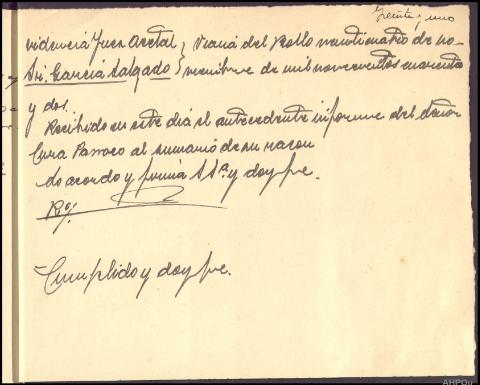 Treinta y uno
videncia Juez acctal } Viana del Bollo veintiuno de no-
Sr. García Salgado } viembre de mil novecientos cuarenta
y dos.
Recibido en este día el antecedente informe del Señor
Cura Párroco al sumario de su razon
Lo acordo y firma S Sª y doy fe.
Rº/
=Cumplido y doy fe.
AHPOu